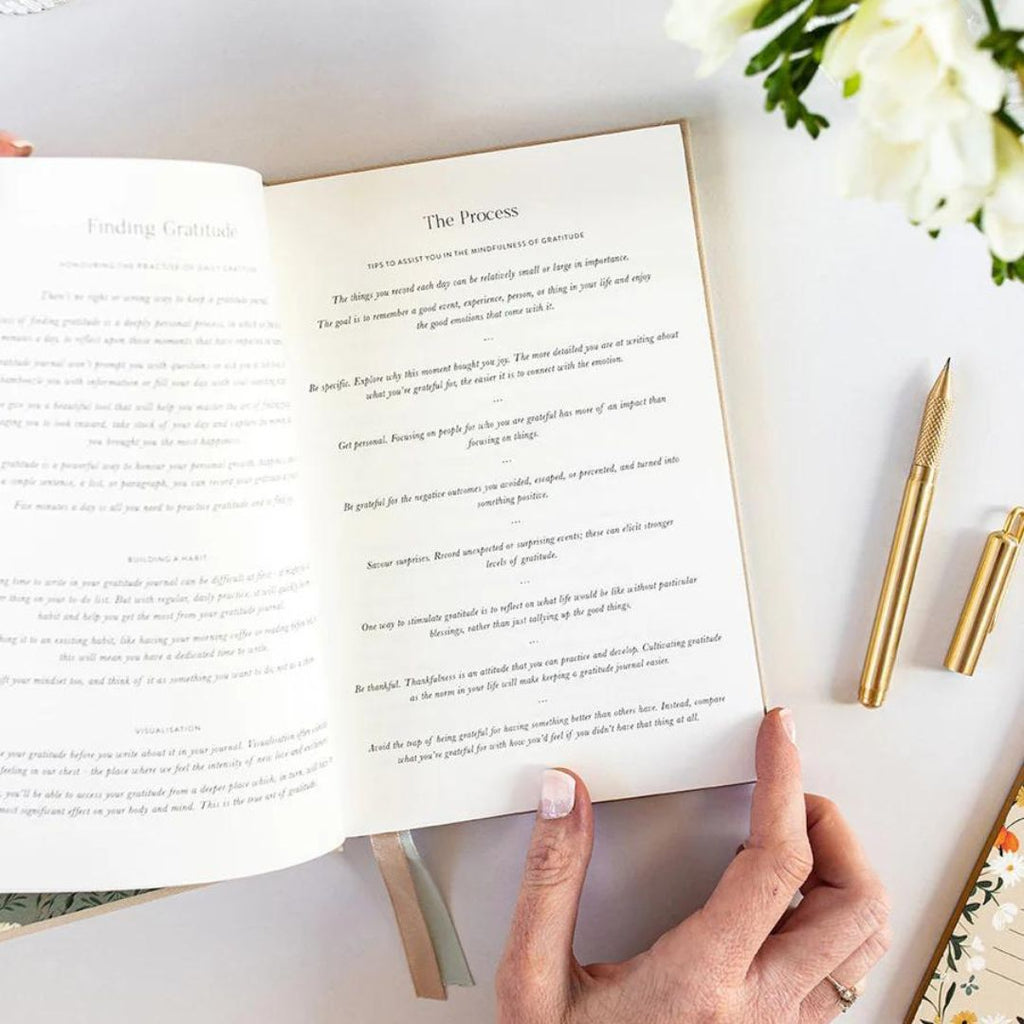 Finding Gratitude
HONOURING THE PRACTISE OF DAILY GRATITUDE
There's no right or wrong way to keep a gratitude
of finding gratitude is a deeply personal process, in which
minutes a day, to reflect upon those moments that have
gratitude journal won't prompt you with questions or
bamboozle you with information or fill your day with
give you a beautiful tool that will help you master the art of
you to look inward, take stock of your day and explore
you brought you the most happiness.
gratitude is a powerful way to honour your personal growth
a simple sentence, a list, or paragraph, you can record your
Five minutes a day is all you need to practise gratitude and
BUILDING A HABIT
time to write in your gratitude journal can be difficult at first - it
thing on your to-do list. But with regular, daily practice, it will quickly
habit and help you get the most from your gratitude journal.
it to an existing habit, like having your morning coffee or reading
this will mean you have a dedicated time to write.
your mindset too, and think of it as something you want to do, not as a
VISUALISATION
your gratitude before you write about it in your journal. Visualisation often
feeling in our chest - the place where we feel the intensity of new love and
you'll be able to access your gratitude from a deeper place which, in turn, will
most significant effect on your body and mind. This is the true art of gratitude.
The Process
TIPS TO ASSIST YOU IN THE MINDFULNESS OF GRATITUDE
The things you record each day can be relatively small or large in importance.
The goal is to remember a good event, experience, person, or thing in your life and enjoy
the good emotions that come with it.
...
Be specific. Explore why this moment bought you joy. The more detailed you are at writing about
what you're grateful for, the easier it is to connect with the emotion.
...
Get personal. Focusing on people for who you are grateful has more of an impact than
focusing on things.
...
Be grateful for the negative outcomes you avoided, escaped, or prevented, and turned into
something positive.
...
Savour surprises. Record unexpected or surprising events; these can elicit stronger
levels of gratitude.
...
One way to stimulate gratitude is to reflect on what life would be like without particular
blessings, rather than just tallying up the good things.
...
Be thankful. Thankfulness is an attitude that you can practice and develop. Cultivating gratitude
as the norm in your life will make keeping a gratitude journal easier.
...
Avoid the trap of being grateful for having something better than others have. Instead, compare
what you're grateful for with how you'd feel if you didn't have that thing at all.